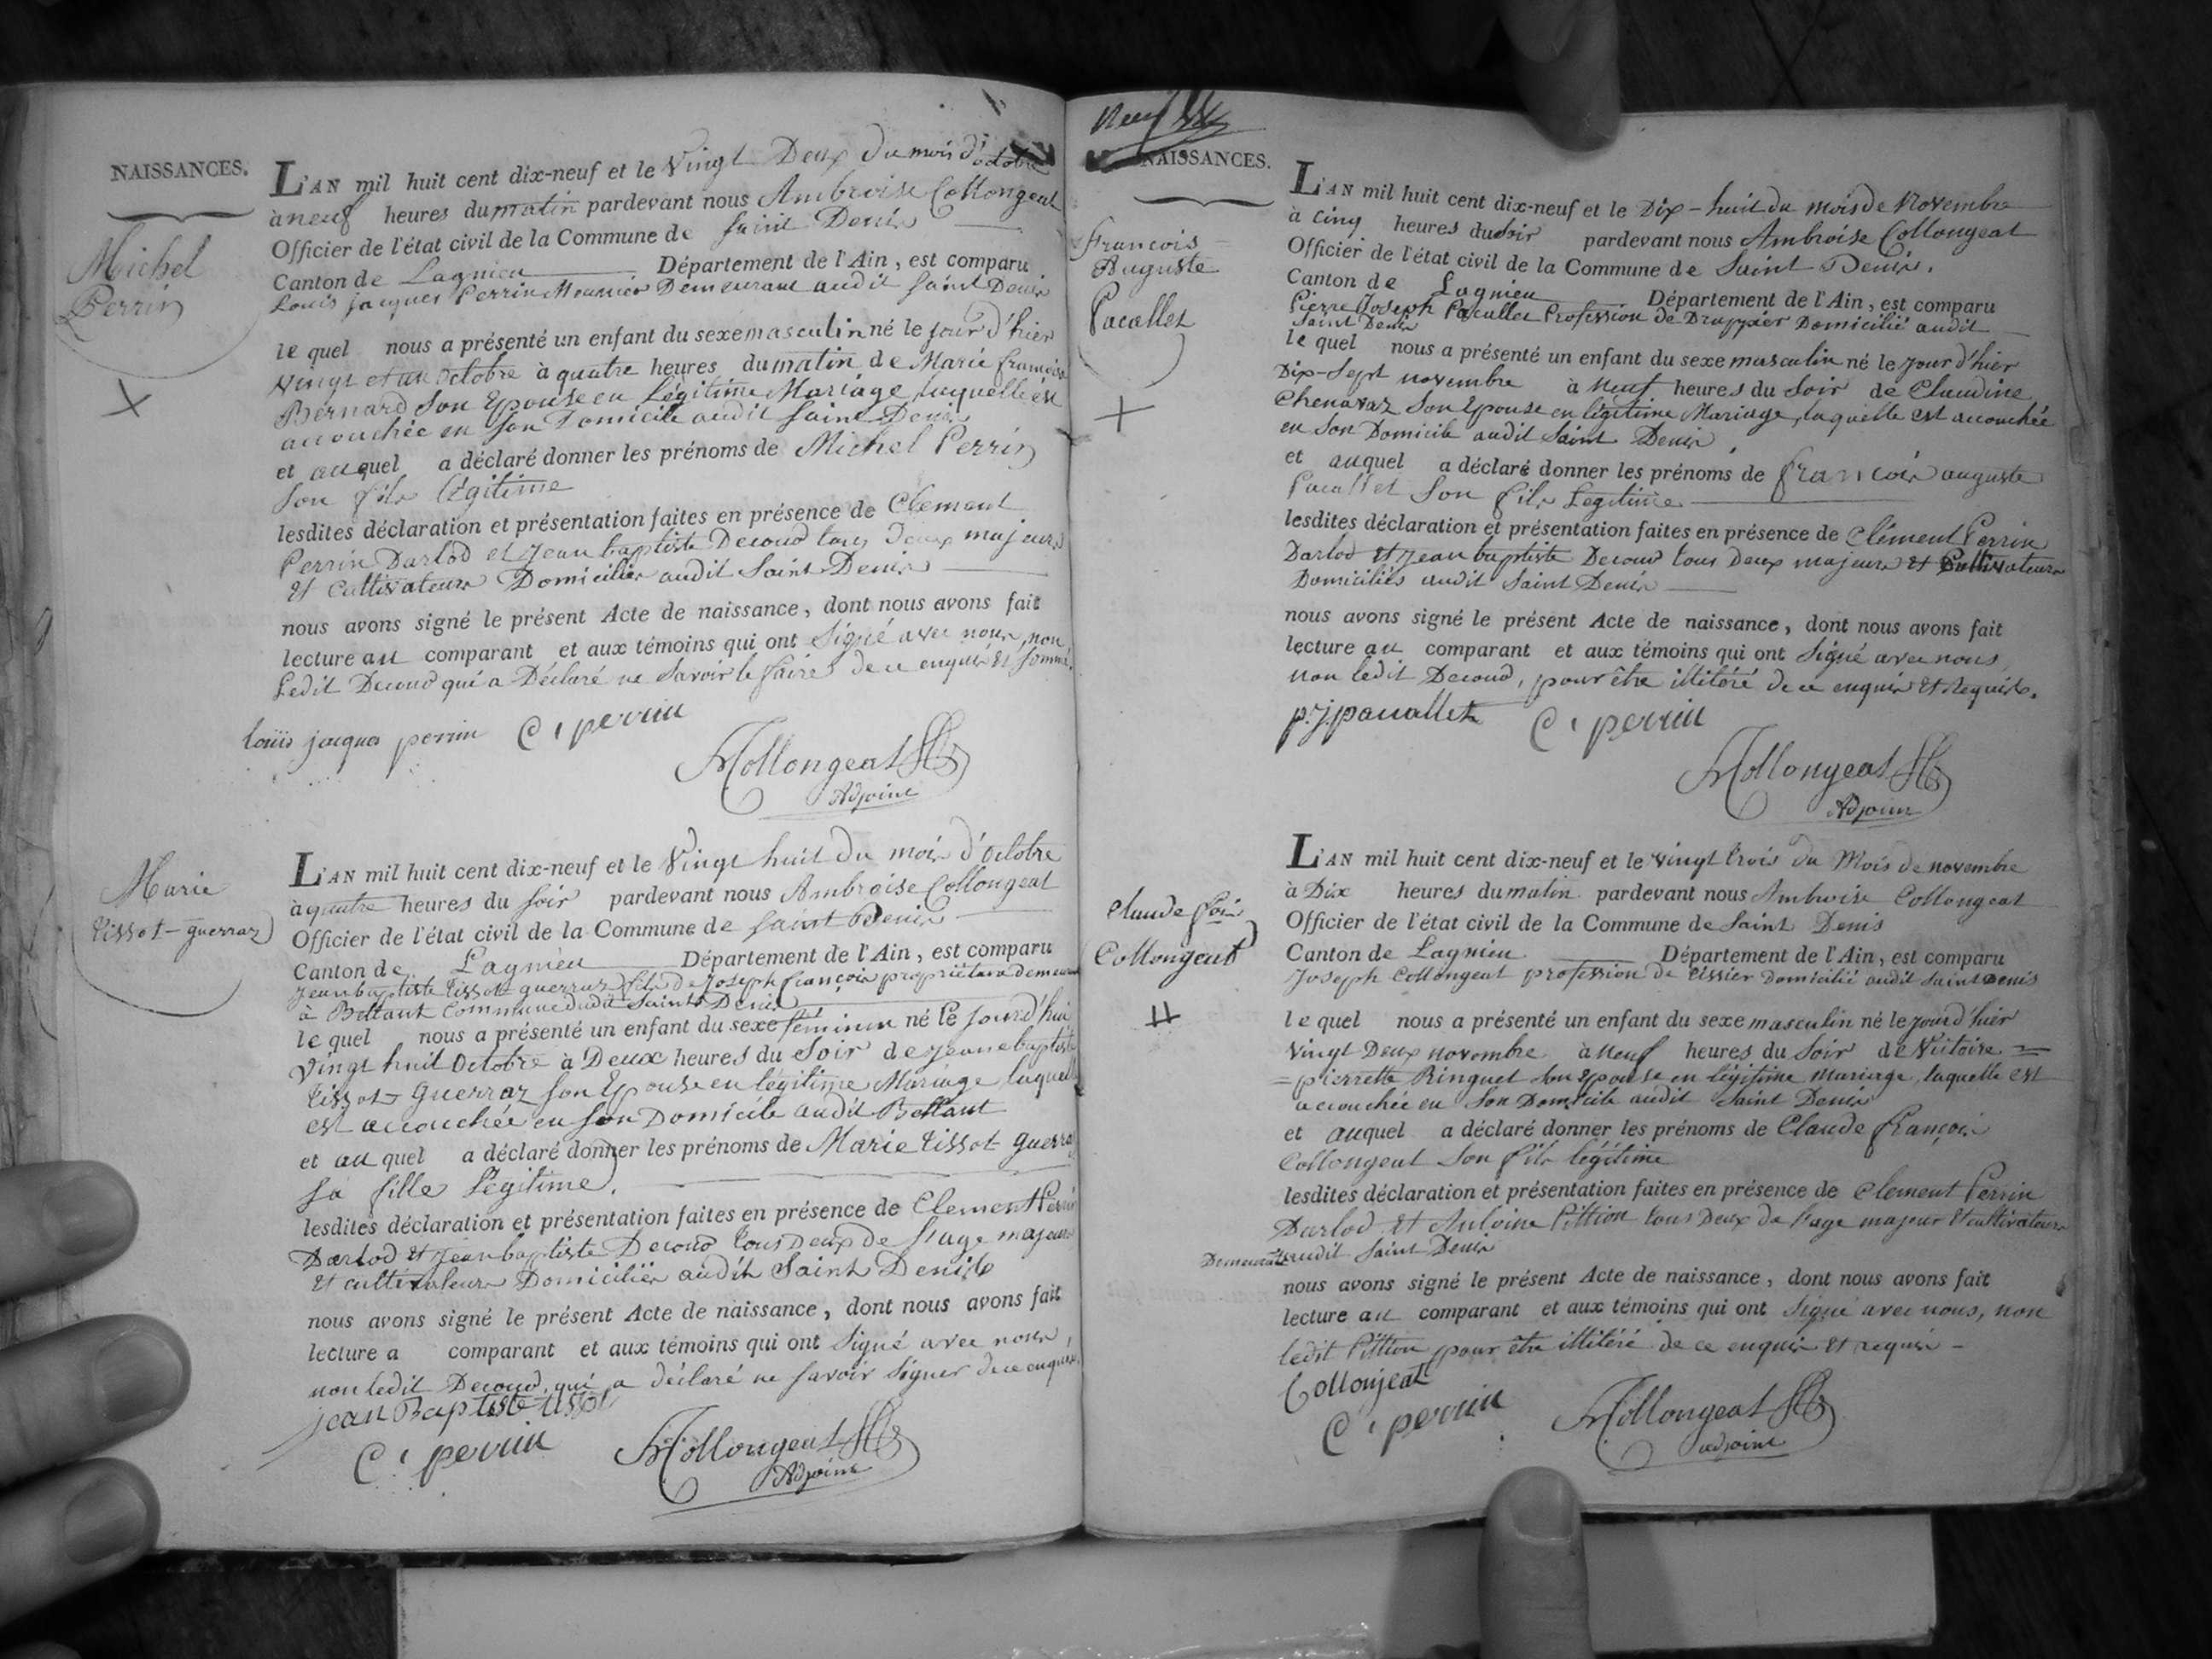 NAISSANCES.
Michel
Perrin
L'AN mil huit cent dix-neuf et le Vingt Deux du mois d'octobre
à neuf heures du matin pardevant nous Ambroise Collongeat
Officier de l'état civil de la Commune de Saint Denis
Canton de Lagnieu Département de l'Ain, est comparu
Louis jacques Perrin Meunier Demeurant audit Saint Denis
le quel nous a présenté un enfant du sexe masculin né le jour d'hier
Vingt et un Octobre à quatre heures du matin de Marie françoise
Bernard Son Epouse en Légitime Mariage, laquelle est
accouchée en Son Domicile audit Saint Denis
et auquel a déclaré donner les prénoms de Michel Perrin
Son fils légitime
lesdites déclaration et présentation faites en présence de Clement
Perrin Darlod et Jean baptiste Decoud tous Deux majeurs
et Cultivateurs Domiciliés audit Saint Denis
nous avons signé le présent Acte de naissance, dont nous avons fait
lecture au comparant et aux témoins qui ont Signé avec nous, non
Ledit Decoud qui a Déclaré ne Savoir le faire de ce enquis et Sommé.
louis jacques perrin C. perrin
Collongeat
Adjoint
Marie
Tissot-guerraz
L'AN mil huit cent dix-neuf et le Vingt huit du mois d'Octobre
à quatre heures du Soir pardevant nous Ambroise Collongeat
Officier de l'état civil de la Commune de Saint Denis
Canton de Lagnieu Département de l'Ain, est comparu
Jean baptiste Tissot guerraz fils de Joseph françois propriétaire demeurant
à Bettant Commune dudit Saint Denis
le quel nous a présenté un enfant du sexe féminin né le jourd'hui
Vingt huit Octobre à Deux heures du Soir de Jeanne baptiste
Tissot-Guerraz Son Epouse en légitime Mariage laquelle
est accouchée en Son Domicile audit Bettant
et au quel a déclaré donner les prénoms de Marie Tissot guerraz
Sa fille Légitime.
lesdites déclaration et présentation faites en présence de Clement Perrin
Darlod et Jean baptiste Decoud tous Deux de l'age majeur
et cultivateurs Domiciliés audit Saint Denis
nous avons signé le présent Acte de naissance, dont nous avons fait
lecture a comparant et aux témoins qui ont Signé avec nous,
non ledit Decoud, qui a déclaré ne Savoir Signer de ce enquis.
jean Baptiste tissot
C. perrin Collongeat
Adjoint
Neuf
NAISSANCES.
François
Auguste
Pacallet
L'AN mil huit cent dix-neuf et le Dix-huit du mois de Novembre
à Cinq heures du soir pardevant nous Ambroise Collongeat
Officier de l'état civil de la Commune de Saint Denis.
Canton de Lagnieu Département de l'Ain, est comparu
Pierre Joseph Pacallet Profession de Drappier Domicilié audit
Saint Denis
le quel nous a présenté un enfant du sexe masculin né le jour d'hier
Dix-Sept novembre à Neuf heures du Soir de Claudine
Chenavaz Son Epouse en légitime Mariage, laquelle est accouchée
en Son Domicile audit Saint Denis,
et auquel a déclaré donner les prénoms de françois auguste
Pacallet Son fils Légitime
lesdites déclaration et présentation faites en présence de Clément Perrin
Darlod et Jean baptiste Decoud tous Deux majeurs et Cultivateurs
Domiciliés audit Saint Denis
nous avons signé le présent Acte de naissance, dont nous avons fait
lecture au comparant et aux témoins qui ont Signé avec nous,
non ledit Decoud, pour être illitéré de ce enquis et Requis.
p.j. pacallet C. perrin
Collongeat
Adjoint
Claude fois
Collongeat
L'AN mil huit cent dix-neuf et le vingt trois du Mois de novembre
à Dix heures du matin pardevant nous Ambroise Collongeat
Officier de l'état civil de la Commune de Saint Denis
Canton de Lagnieu Département de l'Ain, est comparu
Joseph Collongeat profession de tissier Domicilié audit Saint Denis
le quel nous a présenté un enfant du sexe masculin né le jourd'hier
Vingt Deux novembre à Neuf heures du Soir de Victoire =
= pierrette Ringuet Son Epouse en légitime mariage, laquelle est
accouchée en Son Domicile audit Saint Denis
et auquel a déclaré donner les prénoms de Claude françois
Collongeat Son fils légitime
lesdites déclaration et présentation faites en présence de Clement Perrin
Darlod et Antoine Pittion tous Deux de l'age majeur et cultivateurs
Demeurants audit Saint Denis
nous avons signé le présent Acte de naissance, dont nous avons fait
lecture au comparant et aux témoins qui ont Signé avec nous, non
ledit Pittion, pour être illitéré de ce enquis et requis -
Collonjeat
C. perrin Collongeat
adjoint